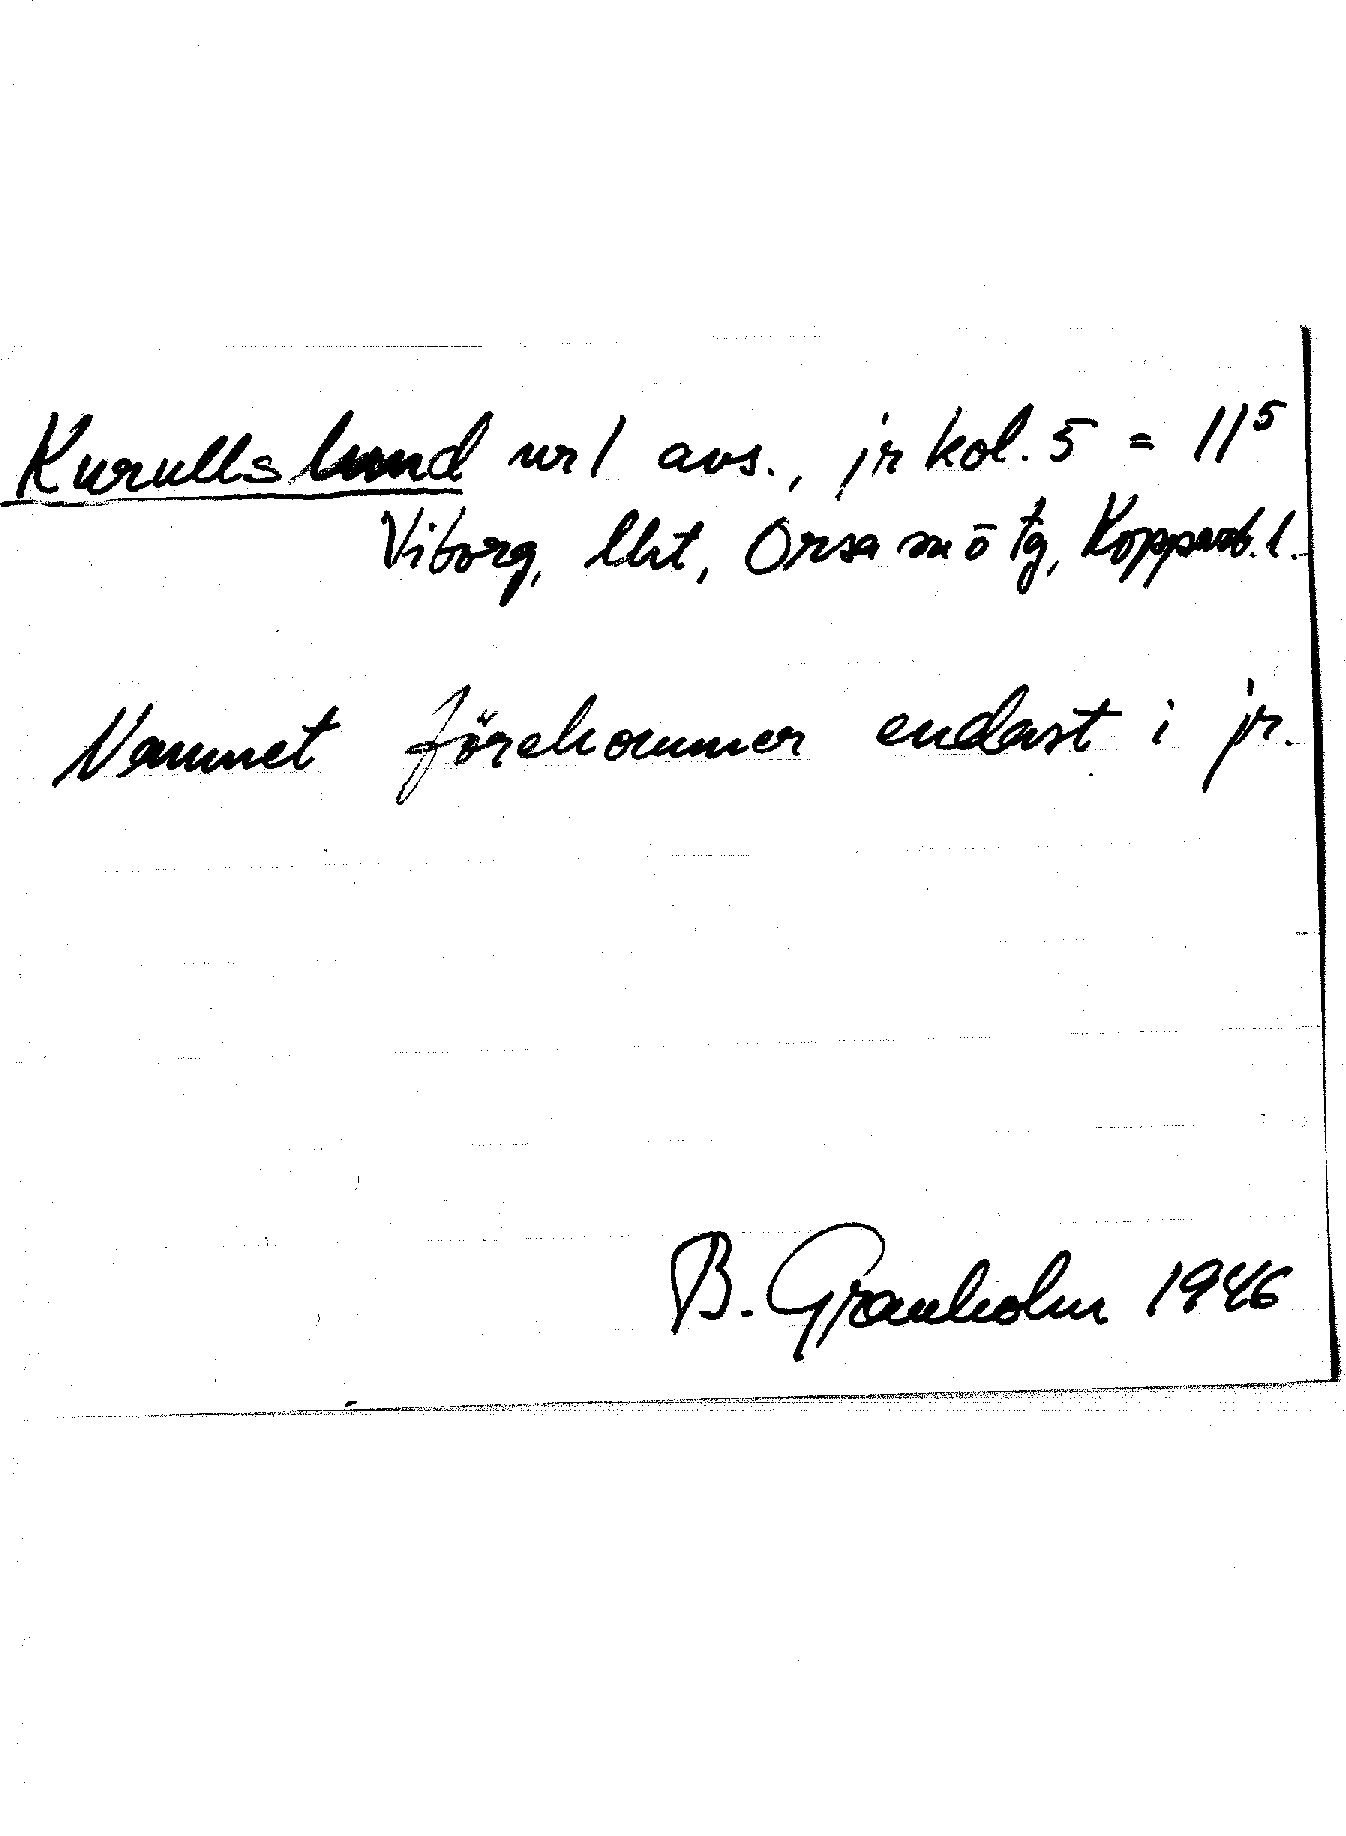 Kurullslund nr 1 avs., jr kol. 5 = 11⁵
Viborg, lht, Orsa sn o tg, Kopparb. l.
Namnet förekommer endast i jr.
B. Granholm 1946